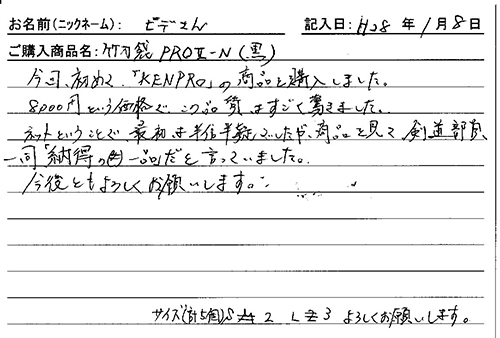 お名前(ニックネーム): ビデさん 記入日: H28 年 1 月 8 日
ご購入商品名: 竹刀袋 PROⅡ-N (黒)
今回、初めて、「KENPRO」の商品を購入しました。
8000円という価格で、この品質はすごく驚きました。
ネットということで最初は半信半疑でしたが、商品を見て剣道部員
一同「納得の一品」だと言っていました。
今後ともよろしくお願いします。
サイズ(計5個)S 2 L 3 よろしくお願いします。